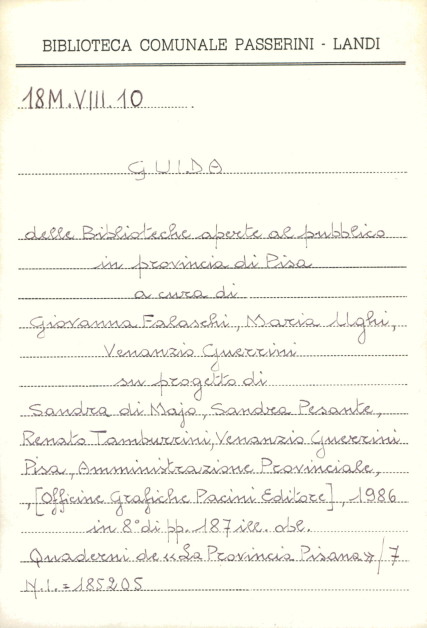 BIBLIOTECA COMUNALE PASSERINI - LANDI
18M.VIII.10
GUIDA
delle Biblioteche aperte al pubblico
in provincia di Pisa
a cura di
Giovanna Falaschi, Maria Ughi,
Venanzio Guerrini
su progetto di
Sandra di Majo, Sandra Pesante,
Renato Tamburrini, Venanzio Guerrini
Pisa, Amministrazione Provinciale,
, [Officine Grafiche Pacini Editore], 1986
in 8° di pp. 187 ill. obl.
Quaderni de «La Provincia Pisana» / 7
N.I. = 185205